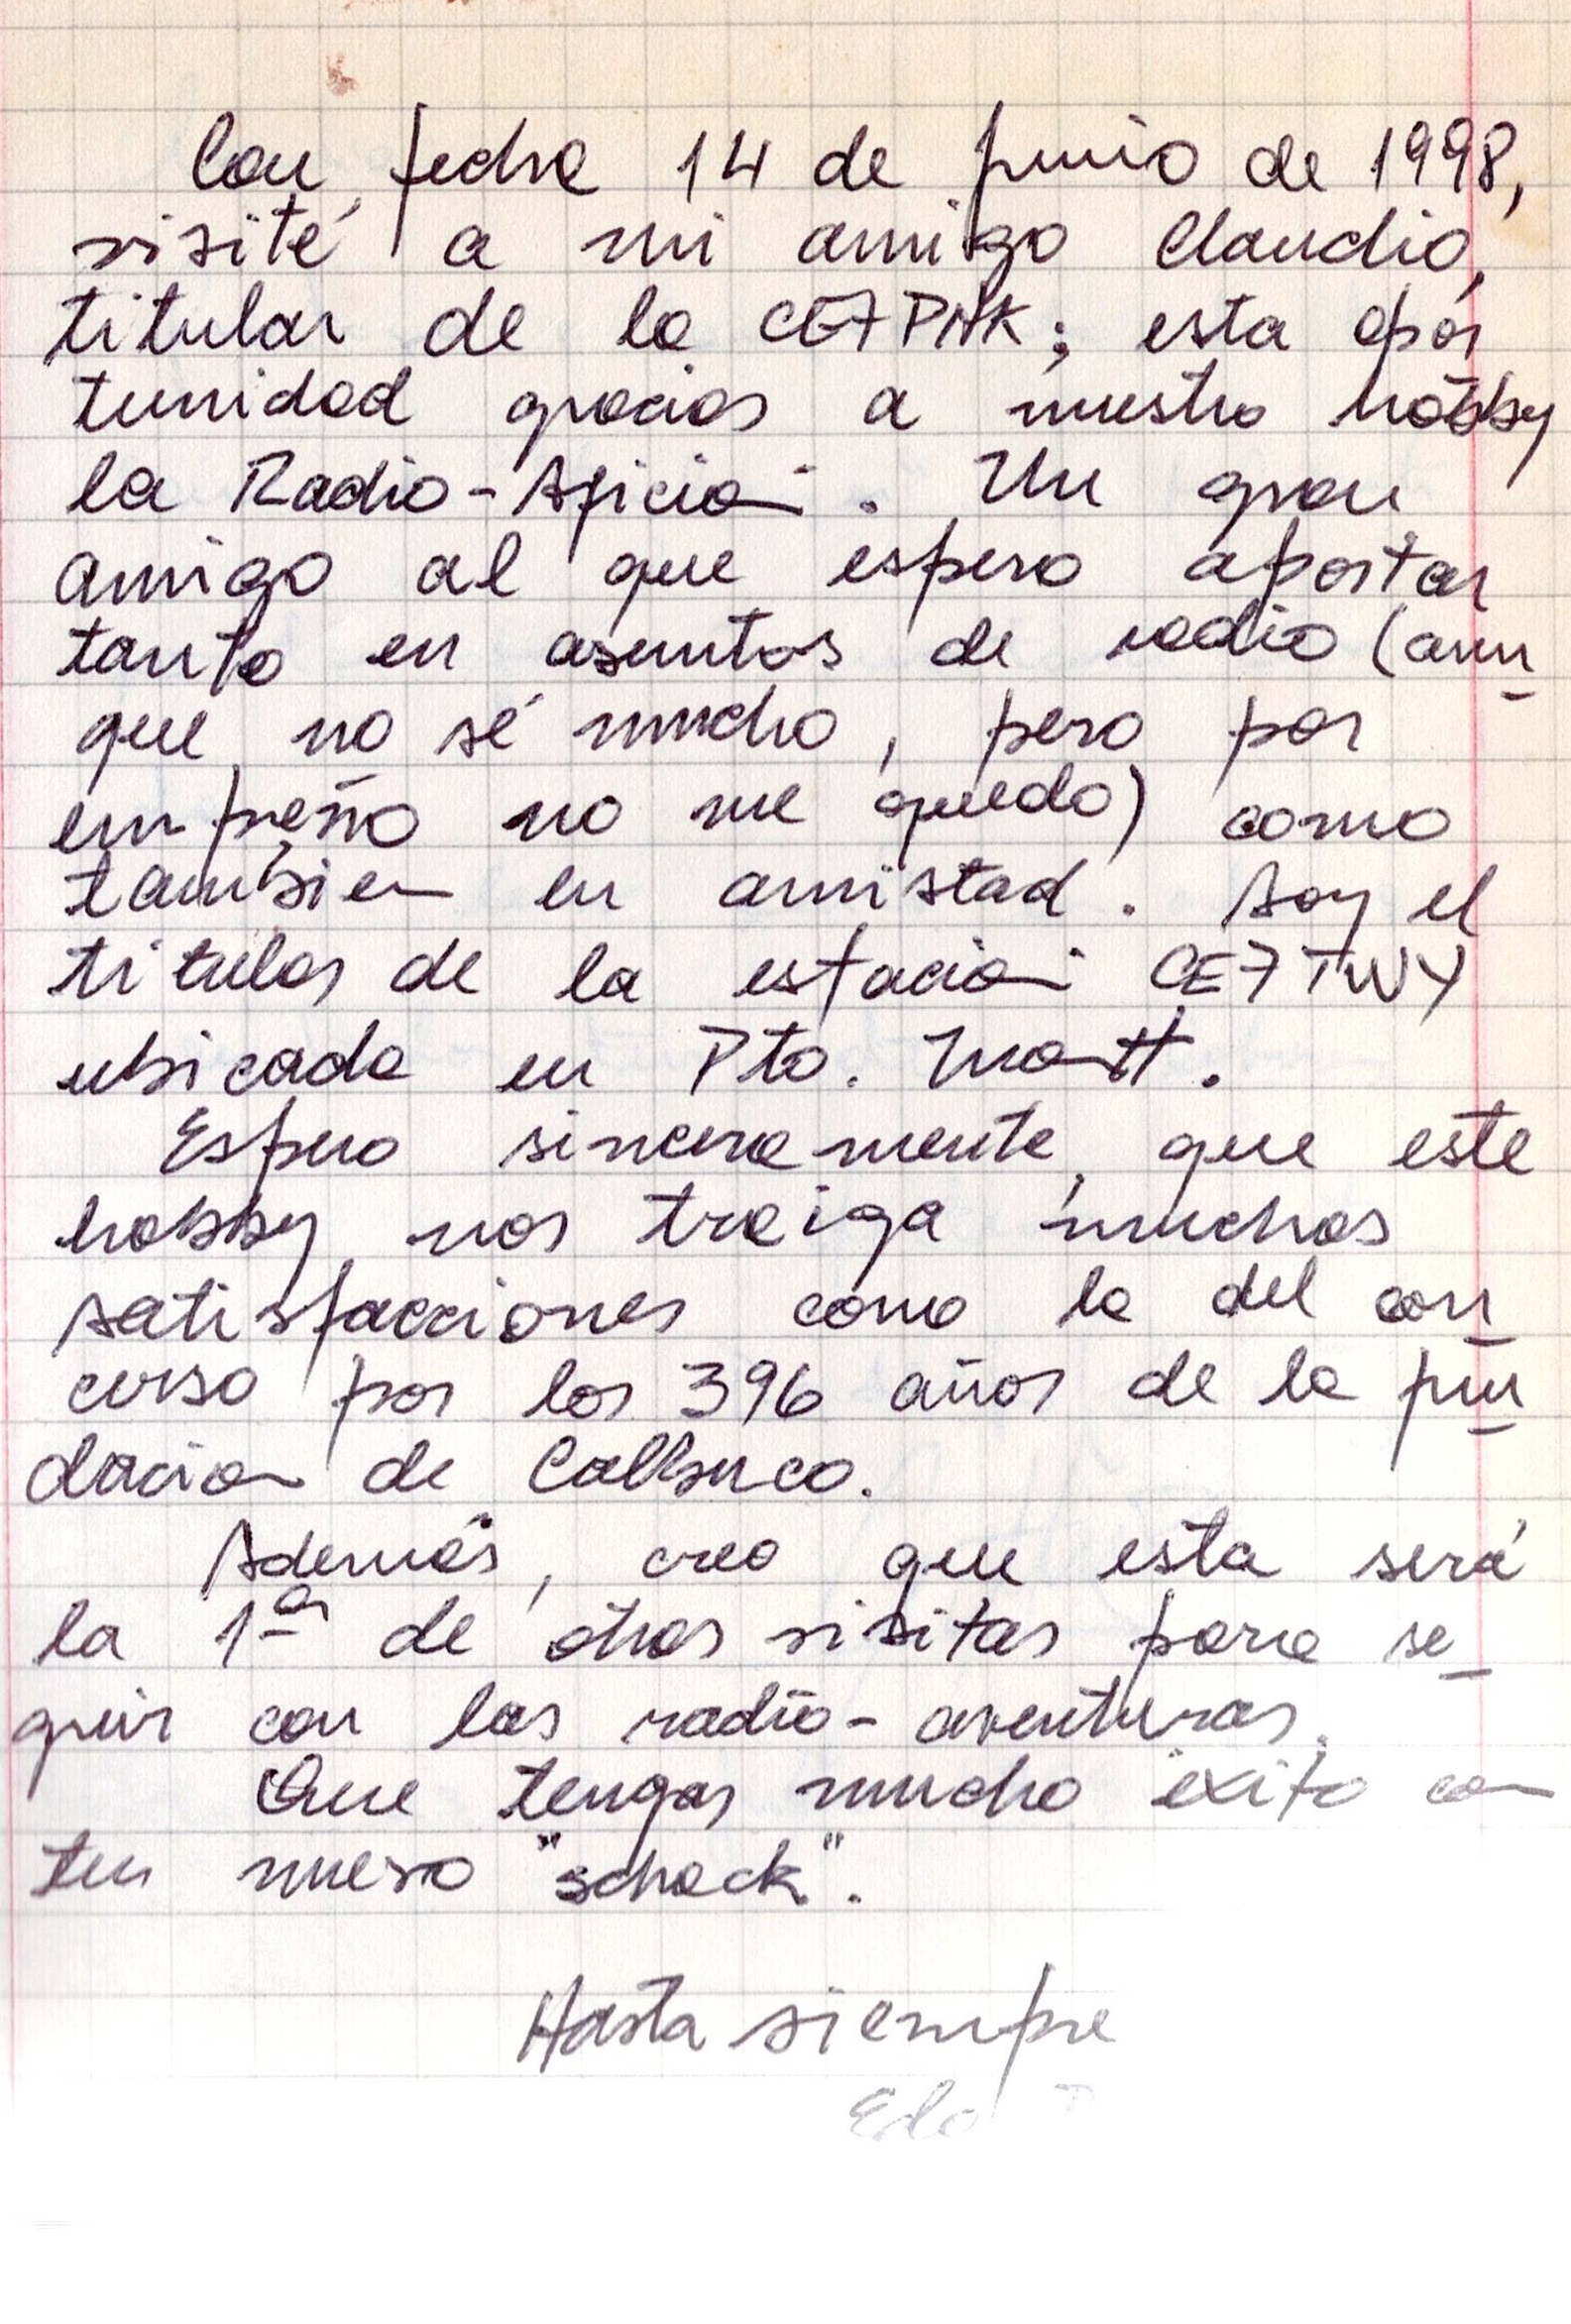 Con fecha 14 de junio de 1998,
visité a mi amigo Claudio,
titular de la CE7PAK; esta opor
tunidad gracias a nuestro hobby
la Radio-Afición. Un gran
amigo al que espero aportar
tanto en asuntos de radio (aun_
que no sé mucho, pero por
empeño no me quedo) como
tambien en amistad. Soy el
titular de la estación CE7TWY
ubicada en Pto. Montt.
Espero sinceramente, que este
hobby nos traiga muchas
satisfacciones como la del con_
curso por los 396 años de la fun_
dacion de Calbuco.
Además, creo que esta será
la 1ª de otras visitas para se_
guir con las radio-aventuras.
Que tengas mucho éxito con
tu nuevo "schack".
Hasta siempre